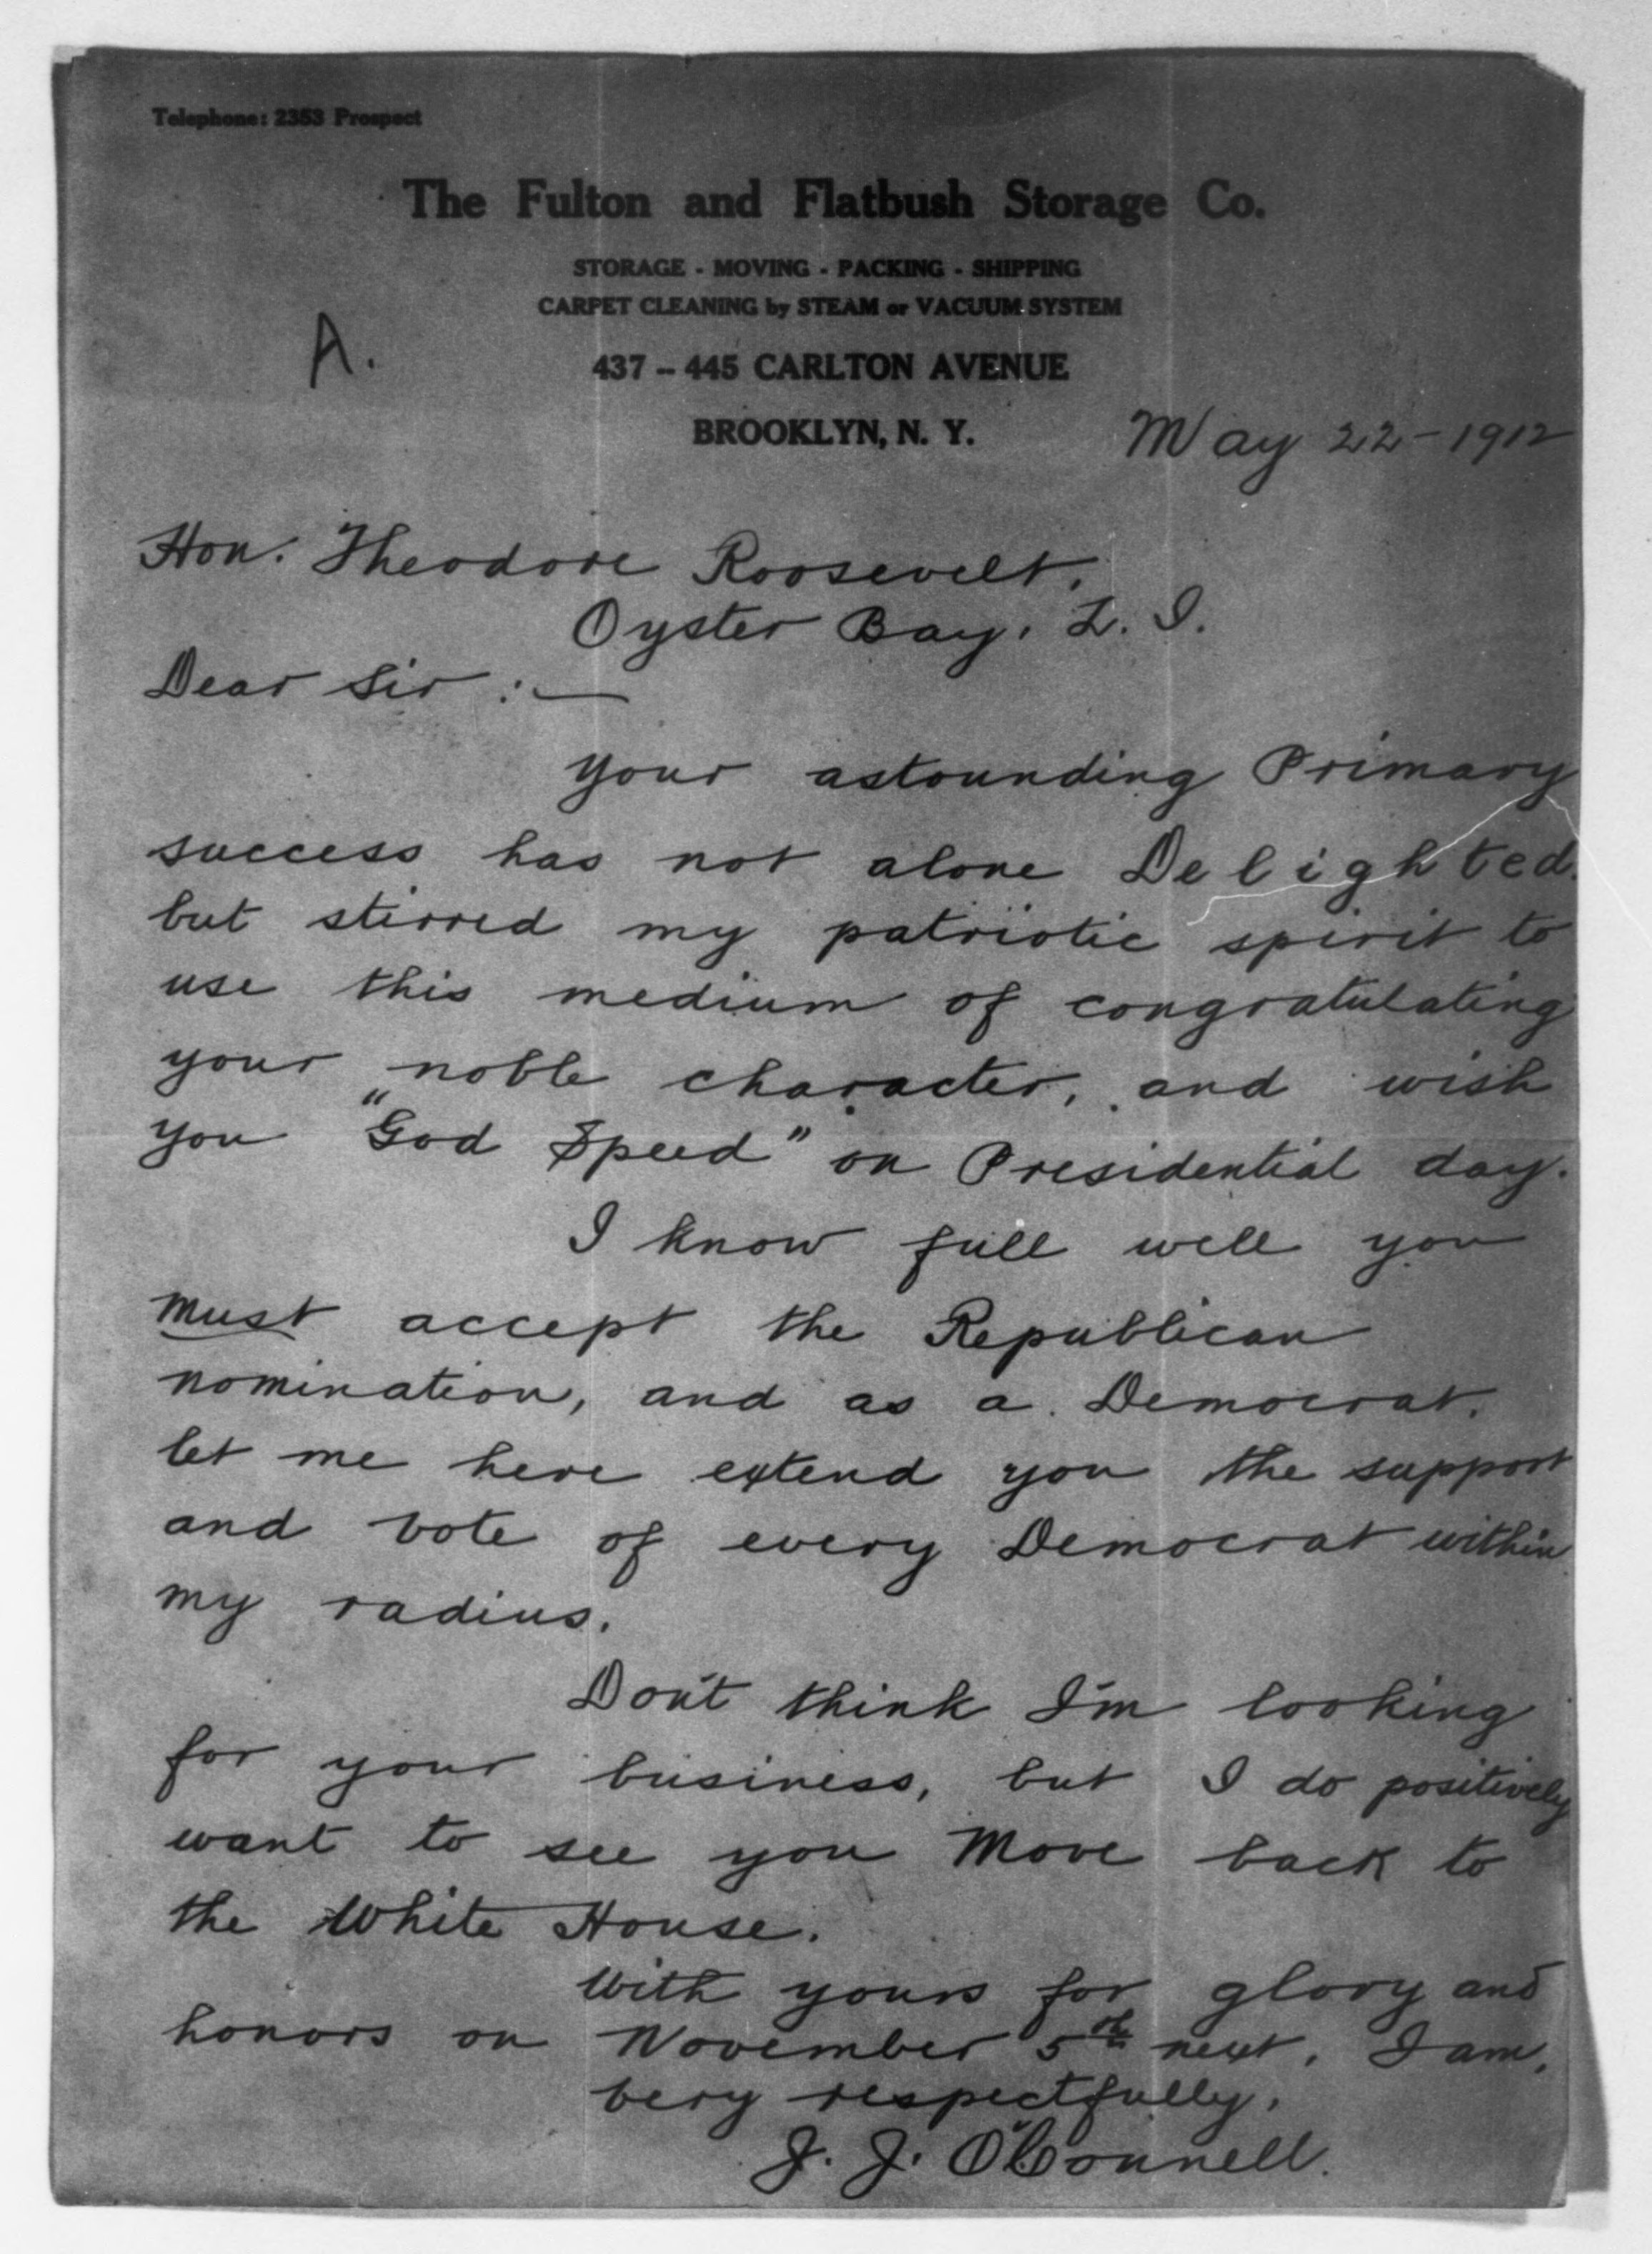 Telephone: 2353 Prospect
The Fulton and Flatbush Storage Co.
STORAGE - MOVING - PACKING - SHIPPING
CARPET CLEANING by STEAM or VACUUM SYSTEM
A.
437 - 445 CARLTON AVENUE
BROOKLYN, N. Y.
May 22-1912
Hon. Theodore Roosevelt,
Oyster Bay, L. I.
Dear Sir :—
Your astounding Primary
success has not alone Delighted
but stirred my patriotic spirit to
use this medium of congratulating
your noble character, and wish
you "God Speed" on Presidential day.
I know full well you
must accept the Republican
nomination, and as a Democrat,
let me here extend you the support
and vote of every Democrat within
my radius.
Don't think I'm looking
for your business, but I do positively
want to see you Move back to
the White House.
With yours for glory and
honors on November 5th next, I am,
very respectfully,
J. J. O'Connell.